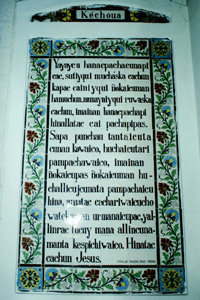 Kéchoua
Yayaycu hanacpachacunapi
cac, sutiyqui muchaska cachun
kapac cainiyqui ñokaicuman
hamuchun, munayniyqui ruwaska
cachun, imainan hanacpachapi
hinallatac cai pachapipas.
Sapa punchau tantaicuta
cunan kowaico, huchaicutari
pampachawaico, imainan
ñokaicupas ñokaicuman hu-
challicujcunata pampachaicu
hina, amatac cachariwaicucho
urmanaicupac, yal-
mana allincuna-
manta kespichiwaico. Hinatac
cachun Jesus.